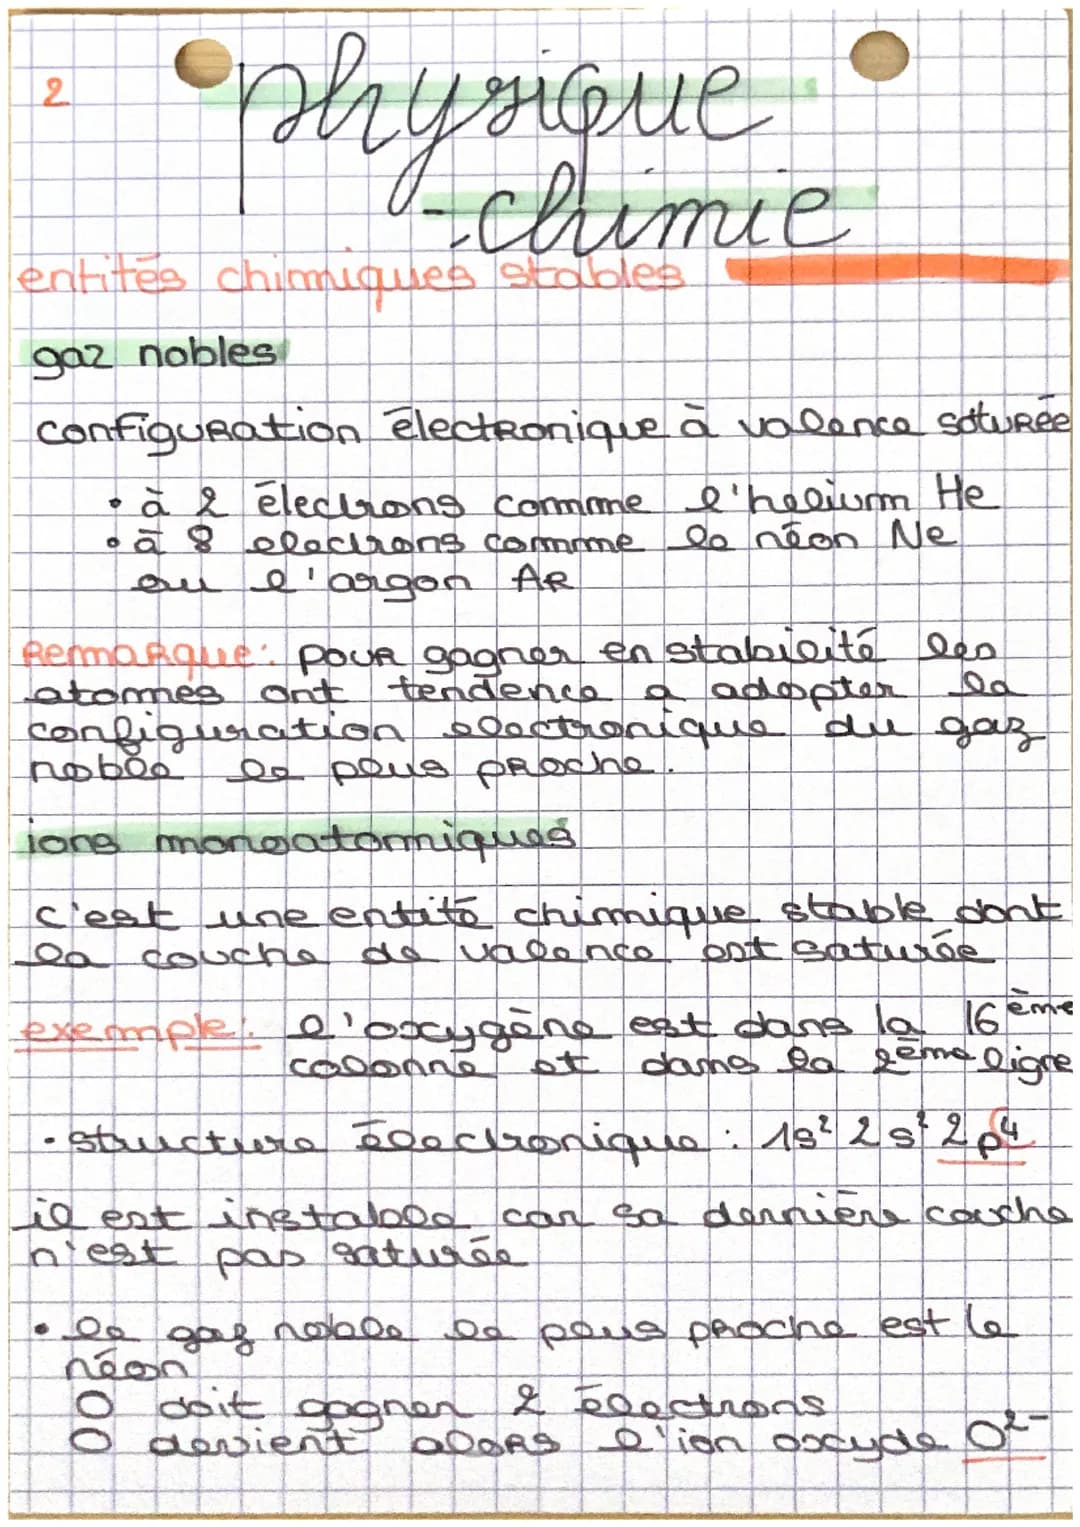 2
physique
-chimie
entités chimiques stables
gaz nobles
configuration électronique à valence saturée
• à 2 électrons comme l'helium He
• à 8 electrons comme le néon Ne
ou l'argon AR
Remarque: pour gagner en stabilité les
atomes ont tendence a adopter la
configuration electronique du gaz
noble le plus proche.
ions monoatomiques
c'est une entité chimique stable dont
la couche de valence est saturée
exemple: l'oxygène est dans la 16ème
colonne et dans la 2ème ligne
• structure électronique : 1s² 2s² 2p⁴
il est instable car sa dernière couche
n'est pas saturée
• le gaz noble le plus proche est le
néon
O doit gagner 2 électrons
O devient alors l'ion oxyde O²⁻